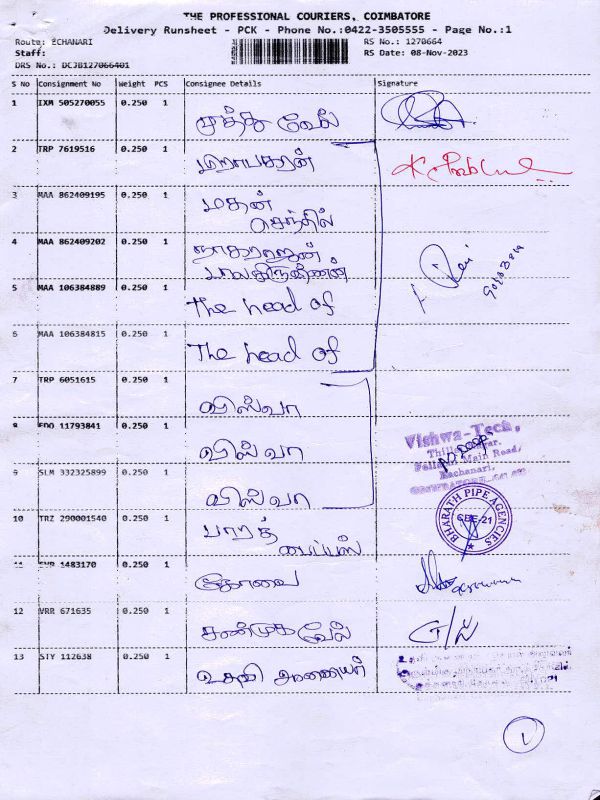 THE PROFESSIONAL COURIERS, COIMBATORE
Delivery Runsheet - PCK - Phone No.:0422-3505555 - Page No.:1
Route: ECHANARI
RS No.: 1270664
Staff:
RS Date: 08-Nov-2023
DRS No.: DCJB127066401
S No Consignment No Weight PCS Consignee Details Signature
1 IXM 505270055 0.250 1 முத்து வேல்
2 TRP 7619516 0.250 1
3 MAA 862409195 0.250 1 மதன் செந்தில்
4 MAA 862409202 0.250 1 நாகராஜன் பாலகிருஷ்ணன்
5 MAA 106384889 0.250 1 The head of
6 MAA 106384815 0.250 1 The head of
7 TRP 6051615 0.250 1 விஸ்வா
8 EDO 11793841 0.250 1 விஸ்வா
Vishwa-Tech,
Main Road,
Eachanari,
9 SLM 332325899 0.250 1 விஸ்வா
10 TRZ 290001540 0.250 1 பாரத் பைப்ஸ்
BHARATH PIPE AGENCIES
CBE-21
11 1483170 0.250 1 கோவை
12 VRR 671635 0.250 1 சண்முகவேல்
13 STY 112638 0.250 1 உதவி ஆணையர்
1